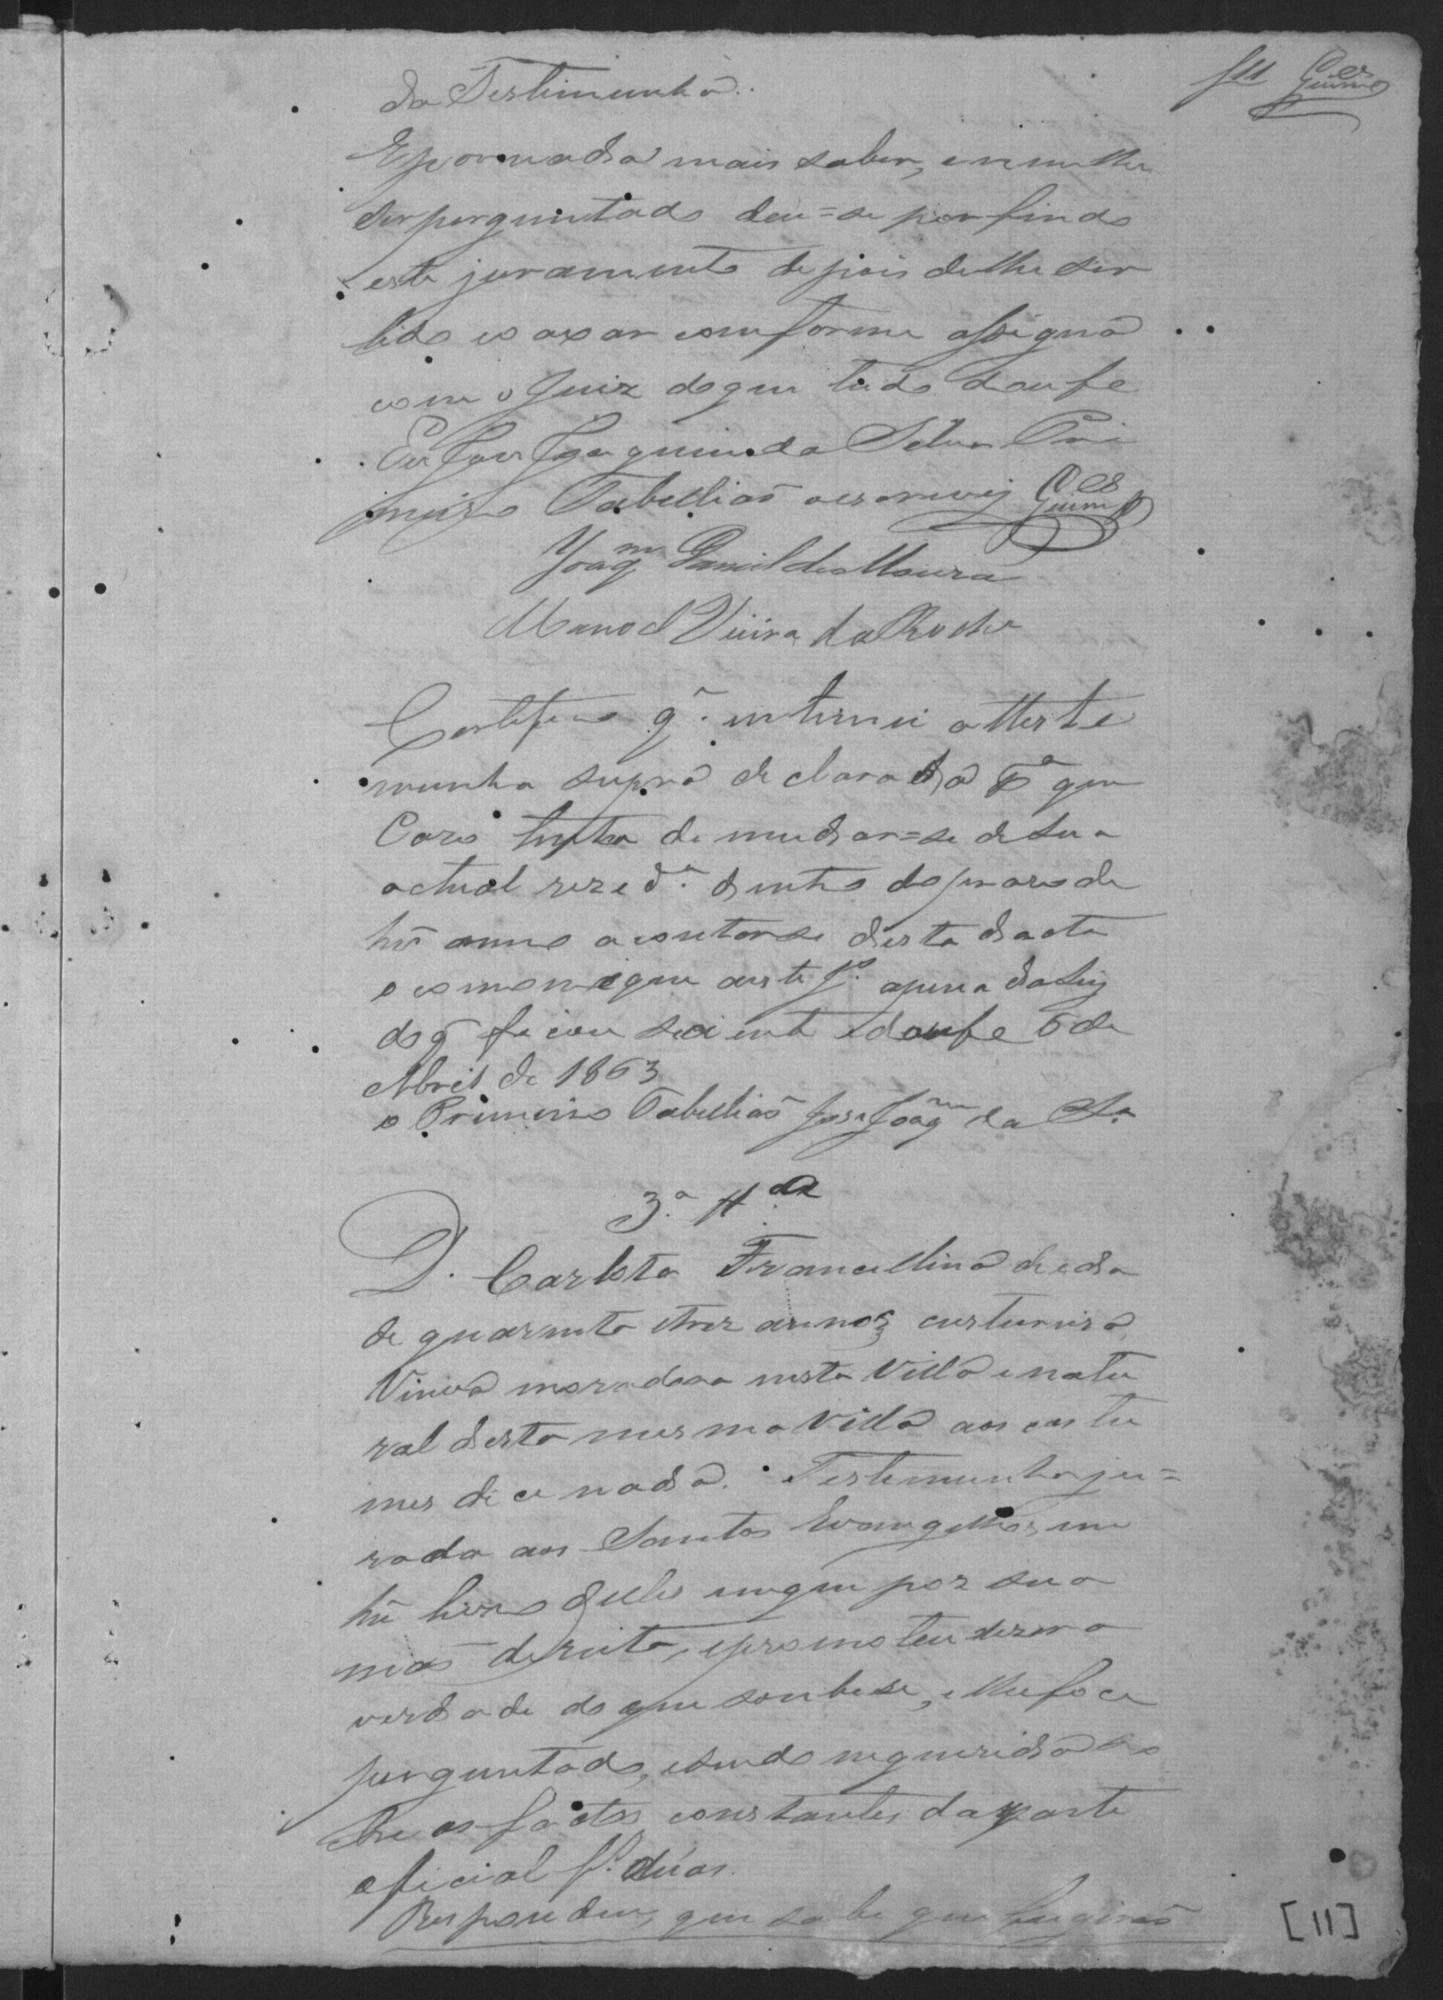 f 11
da Testimunha.
E por nada mais saber, e nem lhe
ser perguntado deu=se por findo
este juramento depois de lhe ser
lido e o axar conforme assigna
com o Juiz do que tudo dou fe
Eu José Joaquim da Silva Pri
meiro Tabellião o escrevi
Joaqm Daniel de Moura
Manoel Vieira da Rocha
Certifico q. intimei a Teste
munha supra declarada pa que
Cazo tenha de mudar=se de sua
actual rezeda. dentro do praso de
hũ anno a contar se desta dacta
o comonique a este Jo. a pena da Ley
do q ficou sciente e dou fe 6 de
Abril de 1863
o Primeiro Tabellião José Joaqm da Sa.
3.a Ttda
D. Carlota Francellina de eda
de quarenta e trez annos, custureira
Viuva moradora nesta Villa e natu
ral desta mesma Villa aos custu
mes dice nada. Testemunha ju=
rada aos Santos Evangelhos, em
hũ livro delles em que poz sua
mão direita, e prometeu dizer a
verdade do que soubese, e lhe foce
perguntado, e sendo inquerida so
bre os factos constantes da parte
oficial f. duas.
Respondeu, que sabe que fugirão
[11]